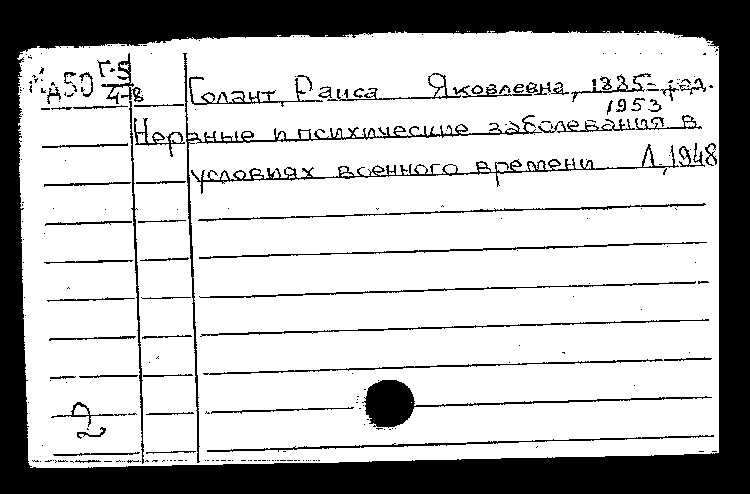 Г-5
Д50 4-18
Голант, Раиса Яковлевна, 1885- ред.
1953
Нервные и психические заболевания в
условиях военного времени Л, 1948
2